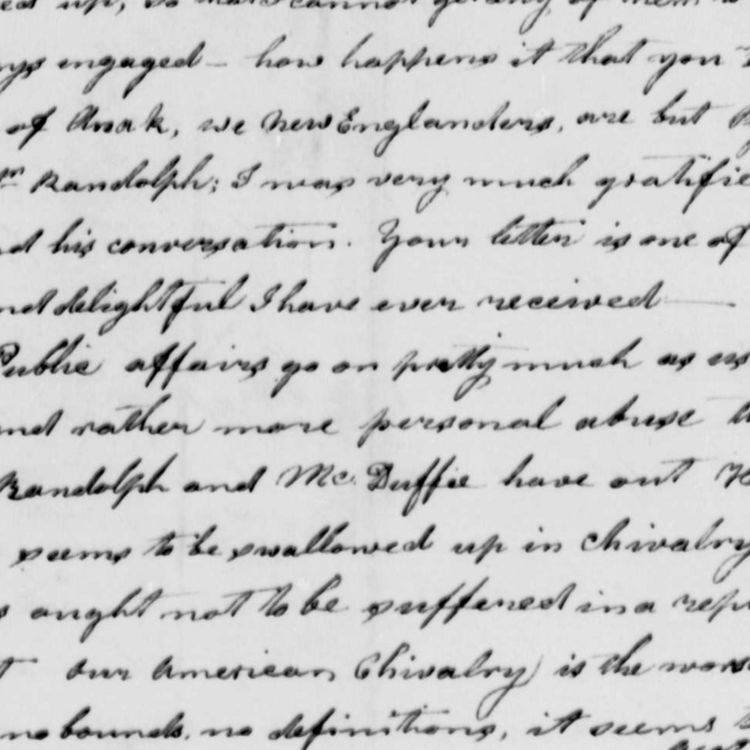 up, so that I cannot get any of them
engaged – how happens it that you
of Anak, we New Englanders, are but
Mr Randolph; I was very much gratifie
nd his conversation. Your letter is one of
nd delightful I have ever received —
Public affairs go on pretty much as us
nd rather more personal abuse th
Randolph and McDuffie have out
seems to be swallowed up in chivalry
s ought not to be suffered in a repu
t our American Chivalry) is the wors
no bounds, no definitions, it seems